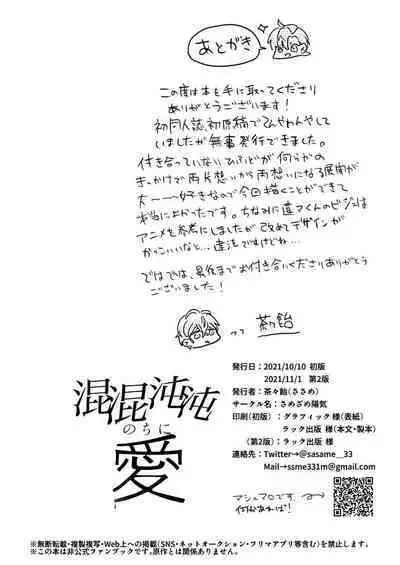 あとがき
この度は本を手に取ってくださり
ありがとうございます！
初同人誌、初原稿でてんやわんやして
いましたが無事発行できました。
付き合っていないひふどが何らかの
きっかけで両片想いから両想いになる展開が
大〜〜〜好きなので今回描くことができて
本当によかったです。ちなみに違法マイクのビジュは
アニメを参考にしましたが改めてデザインが
かっこいいなと…違法ですけどね…
ではでは、最後までお付き合いくださりありがとう
ございました！
茶々飴
混混沌沌
のちに
愛
発行日：2021/10/10 初版
2021/11/1 第2版
発行者：茶々飴(ささめ)
サークル名：さめざめ陽気
印刷(初版)：グラフィック 様(表紙)
ラック出版 様(本文・製本)
(第2版)：ラック出版 様
連絡先：Twitter→@sasame__33
Mail→ssme331m@gmail.com
マシュマロです。
何かあれば！
※無断転載・複製複写・Web上への掲載(SNS・ネットオークション・フリマアプリ等含む)を禁止します。
※この本は非公式ファンブックです。原作とは関係ありません。